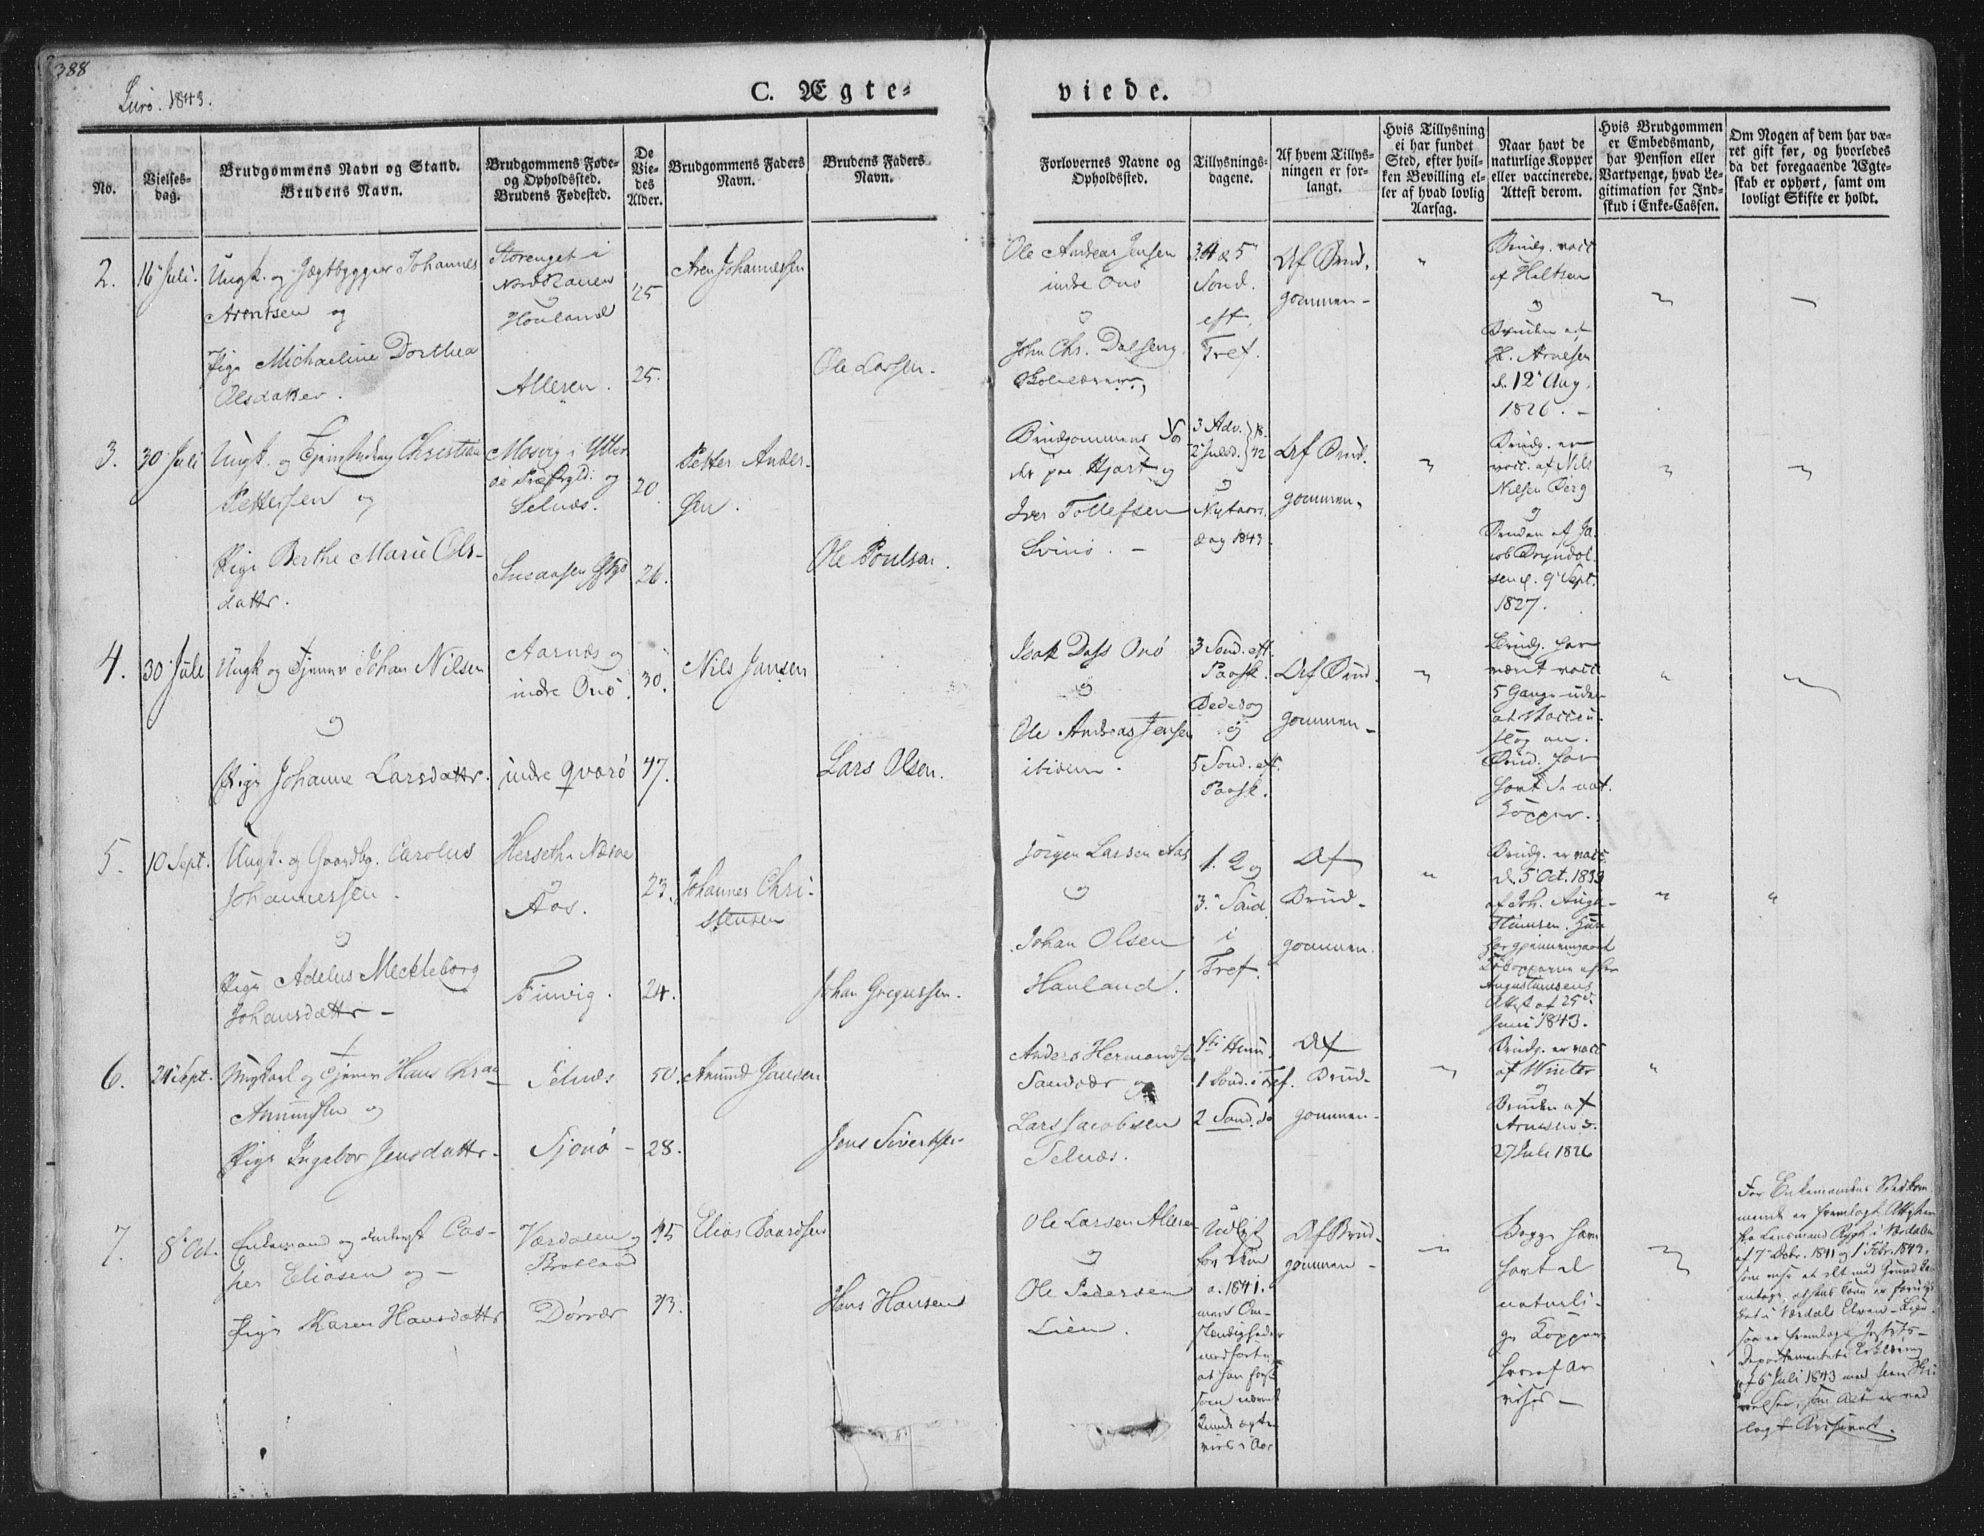 388
Lurö. 1843.
C. Ægte- viede.
No.
Vielses-
dag.
Brudgommens Navn og Stand.
Brudens Navn.
Brudgommens Føde-
og Opholdssted.
Brudens Fødested.
De
Vie-
des
Alder.
Brudgommens Faders
Navn.
Brudens Faders
Navn.
Forlovernes Navne og
Opholdssted.
Tillysnings-
dagene.
Af hvem Tillys-
ningen er for-
langt.
Hvis Tillysning
ei har fundet
Sted, efter hvil-
ken Bevilling el-
ler af hvad lovlig
Aarsag.
Naar havt de
naturlige Kopper
eller vaccinerede.
Attest derom.
Hvis Brudgommen
er Embedsmand,
har Pension eller
Vartpenge, hvad Le-
gitimation for Ind-
skud i Enke-Cassen.
Om Nogen af dem har væ-
ret gift før, og hvorledes
da det foregaaende Ægte-
skab er ophørt, samt om
lovligt Skifte er holdt.
2.
16 Juli.
Ungk. og Jægtbygger Johannes
Arentsen og
Pige Michaeline Dorthea
Olsdatter.
Storenget i
Nordranen
og
Houland
Alleren.
25
25.
Aren Johannessen
Ole Larsen.
Ole Andreas Jensen
indre Onö
og
John Chr. Dalseng
3. 4 & 5
Sond.
eft.
Tref.
Af Brud-
gommen-
Brudg. vacc
af Holtsen
og
Bruden af
H. Arnesen
d. 12 Aug.
1826. -
3.
30 Juli
Ungk. og Christian
Pettersen og
Pige Berthe Marie Ols-
datter.
Mosvig i Ytter-
og
Selnæs.
20.
26.
Petter Ander-
sen.
Ole Poulsen.
Brudgommens Fa-
der paa Hjart og
Iver Tollefsen
Svinö. -
3 Adv.
2 Juled.
og
Nytaars
dag 1843.
Af Brud-
gommen.
Brudg. er
vacc. af Nils
Nilsen Berg
og
Bruden af Ja-
cob Bryndol-
sen d. 9 Sept.
1827.
4.
30 Juli
Ungk og Tjener Johan Nilsen
og
Pige Johanne Larsdatter.
Aarnæs og
indre Onö.
indre Qvarö
30.
47.
Nils Jansen
Lars Olsen.
Isak Dass Onö
og
Ole Andreas Jensen
ibidem.
3 Sond. eft.
Paask.
Bededag
og
5 Sond. eft.
Paask.
Af Brud-
gommen-
Brudg. har
været vacc
5 Gange uden
at Vaccin.
slog an.
Brud. har
havt de nat.
Kopper.
5.
10 Sept.
Ungk. og Gaardbg. Carolus
Johannessen.
og
Pige Adelus Meckleborg
Johansdatter -
Herseth i Næsne
og
Aas.
Finvig.
23.
24.
Johannes Chri-
stensen
Johan Gregussen.
Jörgen Larsen Aas
og
Johan Olsen
Hauland.
1. 2 og
3. Sönd.
i
Tref.
Af
Brud-
gommen.
Brudg. er vacc.
d. 5 Oct. 1833
af Joh. Augu-
stinusen. Hun
har gjennemgaaet
Kokopperne efter
Augustinusens
Attest af 25
Juni 1843.
6.
24 Sept.
Ungkarl og Tjener Hans Chr
Amundsen og
Pige Ingebor Jensdatter.
Selnæs
Sjonö -
50.
28.
Amund Jansen
Jens Sivertsen
Anders Hermandsen
Sandvær og
Lars Jacobsen
Selnæs.
Himm.
1 Sond. i Tref.
2 Sond. do
Af
Brud-
gommen-
Brudg. er vacc
af Winter
og
Bruden af
Arnesen d.
27 Juli 1826
7.
8 Oct.
Enkemand og Cas-
per Eliasen og -
Pige Karen Hansdatter
Værdalen og
Bratland
Dörvær
45
43.
Elias Baardsen
Hans Hansen
Ole Larsen Alleren
og
Ole Pedersen
Lien.
Udlyst
1841.
men Om-
stændigheder
medførte,
at han først
Kunde ægte
vies i Aar
Af Brud-
gommen -
Begge have
havt de
naturli-
ge Kopper
-
For Enkemandens Vedkom
mende er fremlagt Attester
fra Lensmand Rygh i Verdalen
af 7 Dcbr. 1841 og 1 Febr. 1843,
i Værdals Elven -
saa er fremlagt Justits-
Departementets Erklæring
af 6 Juli 1843
lagt Archivet.